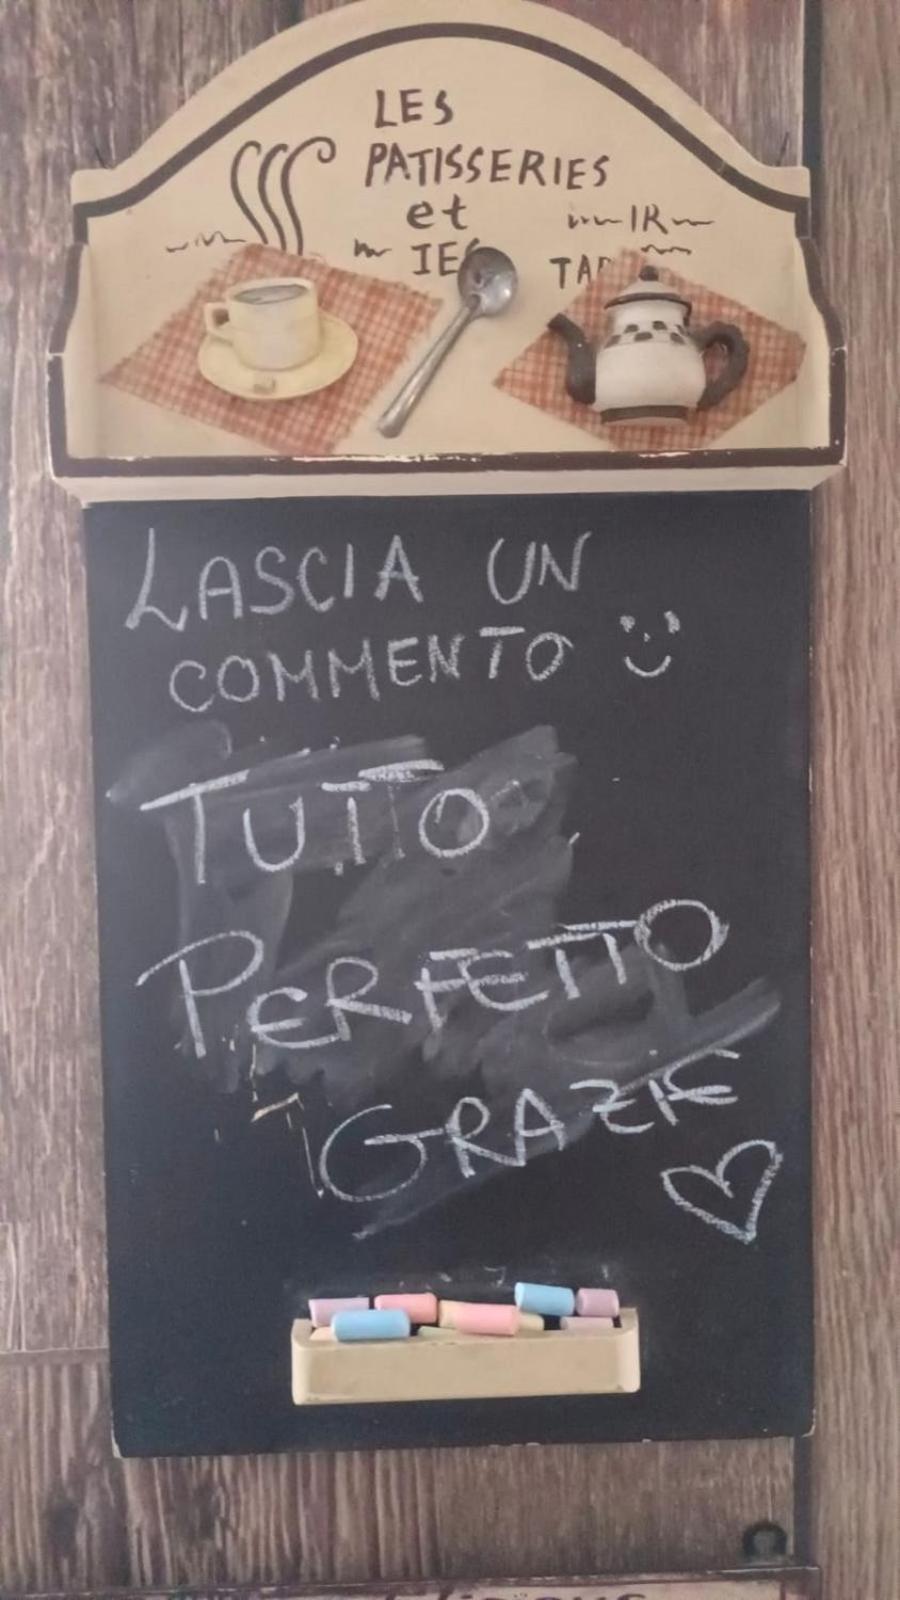 LES
PATISSERIES
et
IR
IES
LASCIA UN
COMMENTO
TUTTO
PERFETTO
GRAZIE